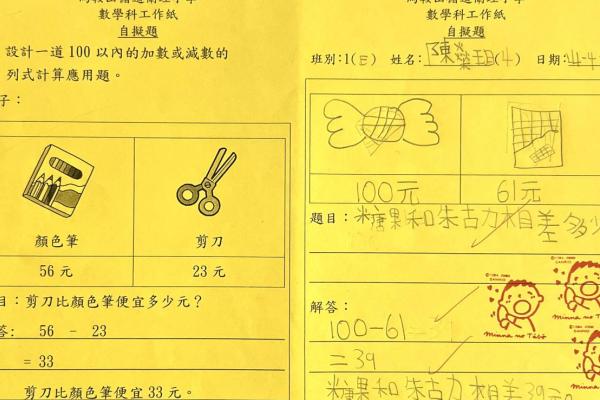 數學科工作紙
自擬題
設計一道 100 以內的加數或減數的
列式計算應用題。
子：
顏色筆
剪刀
56 元
23 元
目：剪刀比顏色筆便宜多少元？
答： 56 - 23
= 33
剪刀比顏色筆便宜 33 元。
數學科工作紙
自擬題
班別:1(E) 姓名: 陳 (4) 日期:
100元
61元
題目：糖果和朱古力相差多少
解答：
100-61
=39
糖果和朱古力相差39元。
Minna no Tabō
Minna no Tabō